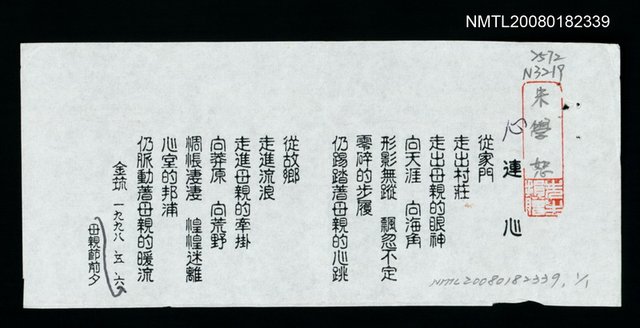 NMTL20080182339
2572
N3219
朱學恕
心連心
從家門
走出村莊
走出母親的眼神
向天涯 向海角
形影無蹤 飄忽不定
零碎的步履
仍踢踏著母親的心跳
從故鄉
走進流浪
走進母親的牽掛
向莽原 向荒野
惆悵淒淒 惶惶迷離
心室的邦浦
仍脈動著母親的暖流
金筑 一九九八 五 六
母親節前夕
NMTL20080182339, 1/1